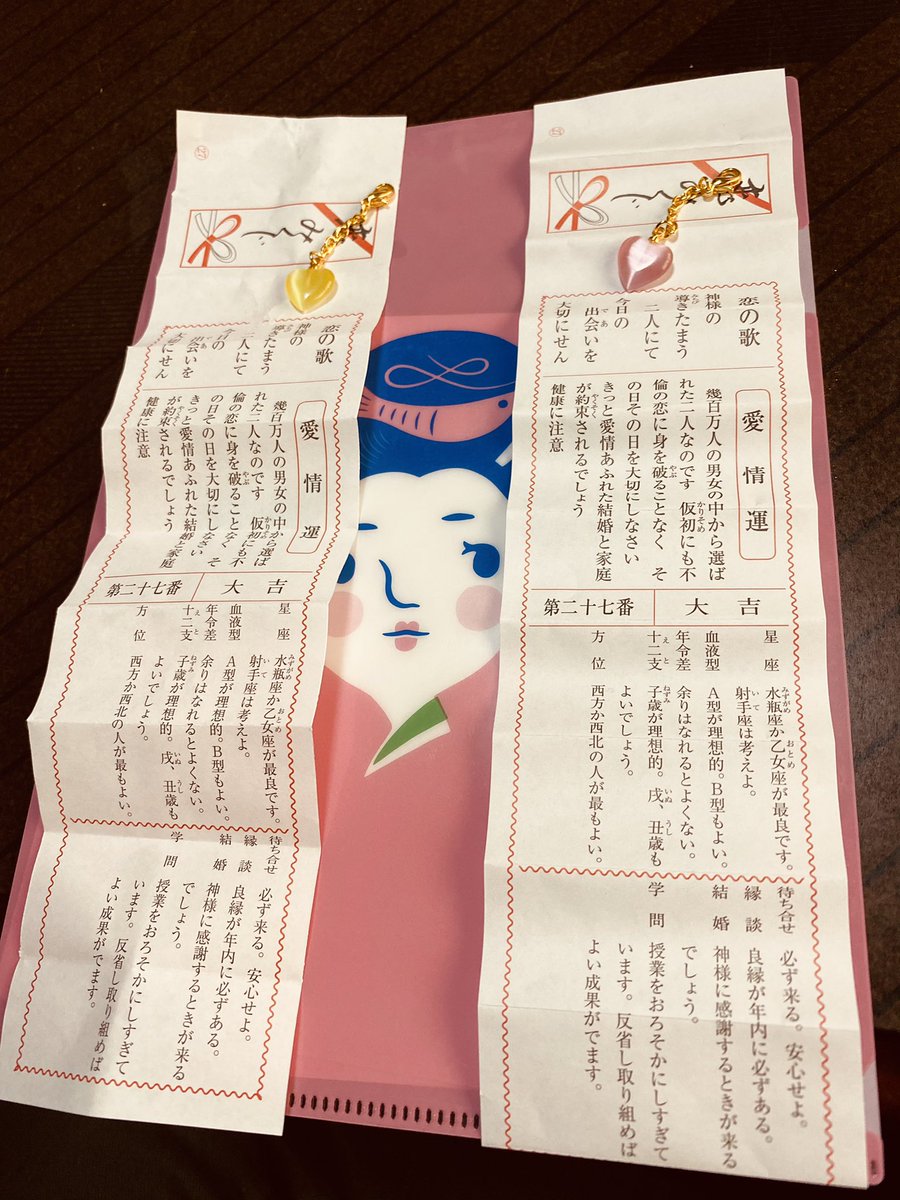 ㉗
おみくじ
恋の歌
神様の
導きたまう
二人にて
今日の
出会いを
大切にせん
愛情運
幾百万人の男女の中から選ば
れた二人なのです 仮初にも不
倫の恋に身を破ることなく そ
の日その日を大切にしなさい
きっと愛情あふれた結婚と家庭
が約束されるでしょう
健康に注意
大吉
第二十七番
星座 水瓶座か乙女座が最良です。
射手座は考えよ。
血液型 A型が理想的。B型もよい。
年令差 余りはなれるとよくない。
十二支 子歳が理想的。戌、丑歳も
よいでしょう。
方位 西方か西北の人が最もよい。
待ち合せ 必ず来る。安心せよ。
縁談 良縁が年内に必ずある。
結婚 神様に感謝するときが来る
でしょう。
学問 授業をおろそかにしすぎて
います。反省し取り組めば
よい成果がでます。
㉗
おみくじ
恋の歌
神様の
導きたまう
二人にて
今日の
出会いを
大切にせん
愛情運
幾百万人の男女の中から選ば
れた二人なのです 仮初にも不
倫の恋に身を破ることなく そ
の日その日を大切にしなさい
きっと愛情あふれた結婚と家庭
が約束されるでしょう
健康に注意
大吉
第二十七番
星座 水瓶座か乙女座が最良です。
射手座は考えよ。
血液型 A型が理想的。B型もよい。
年令差 余りはなれるとよくない。
十二支 子歳が理想的。戌、丑歳も
よいでしょう。
方位 西方か西北の人が最もよい。
待ち合せ 必ず来る。安心せよ。
縁談 良縁が年内に必ずある。
結婚 神様に感謝するときが来る
でしょう。
学問 授業をおろそかにしすぎて
います。反省し取り組めば
よい成果がでます。